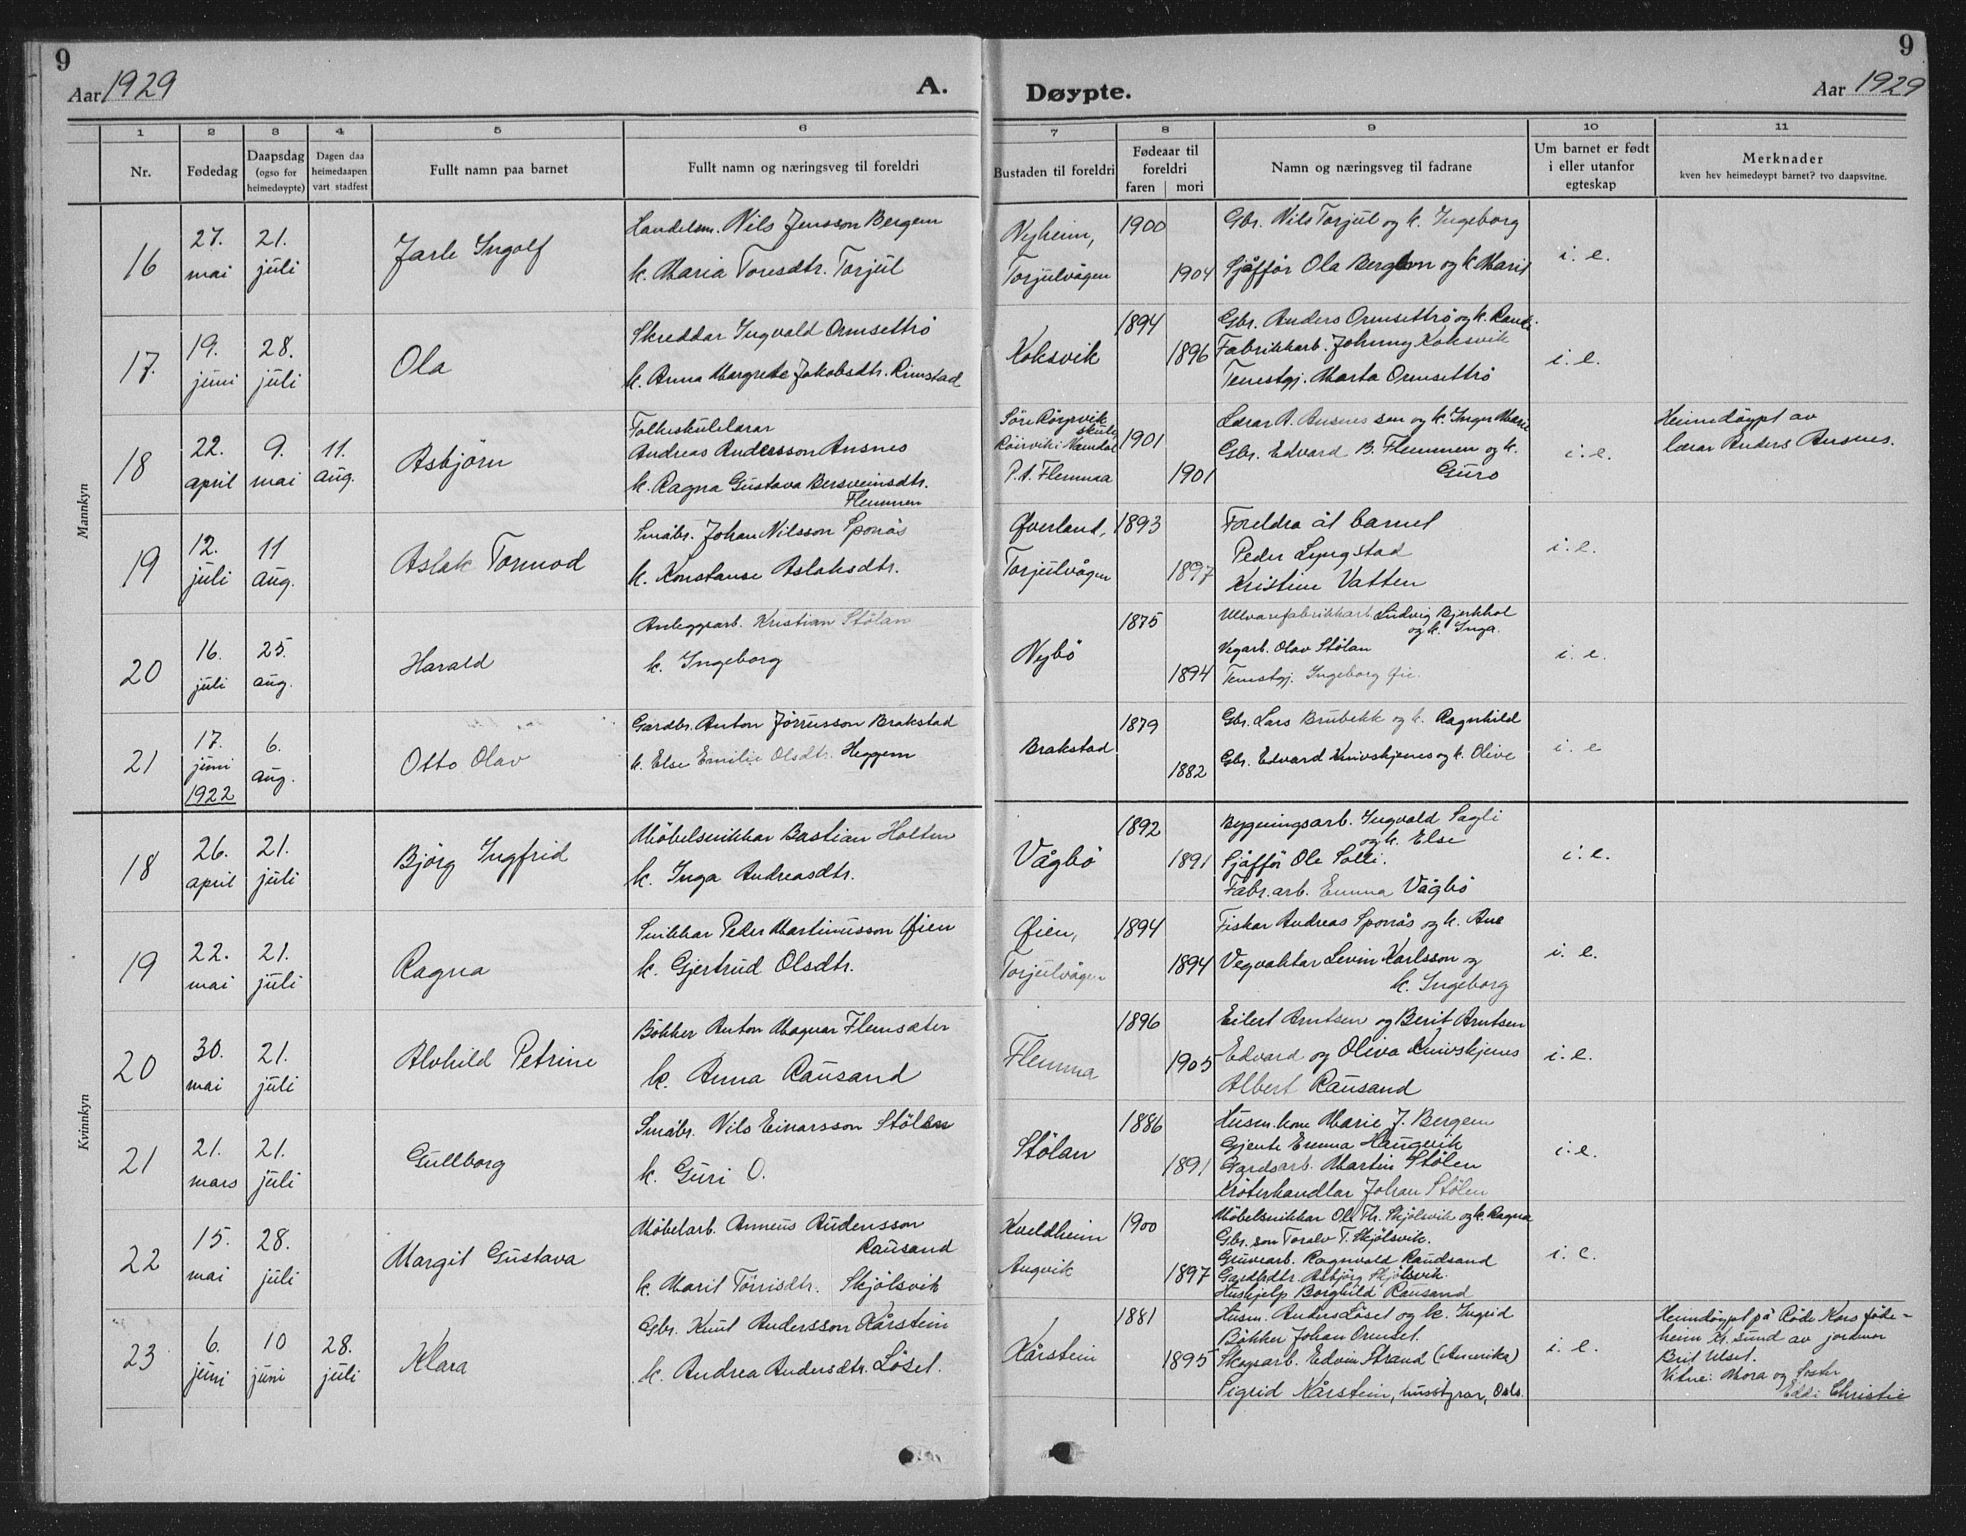 9
Aar 1929
A.
1 2 3 4 5 6
Nr. Fødedag Daapsdag (ogso for heimedøypte) Dagen daa heimedaapen vart stadfest Fullt namn paa barnet Fullt namn og næringsveg til foreldri
Mannkyn
16 27. mai 21. juli Jarle Ingolf
Handelsm. Nils Jensson Bergem
k. Maria Toresdtr. Torjul
17. 19. juni 28. juli Ola
Skreddar Ingvald Ormsettrø
k. Anna Margrete Jakobsdtr. Rimstad
18 22. april 9. mai 11. aug. Asbjörn
Folkeskulelærar
Andreas Andersson Ansnes
k. Ragna Gustava Bersveinsdtr.
Flemmen
19 12. juli 11 aug. Aslak Tormod
Småbr. Johan Nilsson Sponås
k. Konstanse Aslaksdtr.
20 16. juli 25. aug. Harald
Anleggsarb. Kristian Stölan
k. Ingeborg
21 17. juni 1922 6. aug. Otto Olav
Gardbr. Anton Jörrusson Brakstad
k. Else Emilie Olsdtr. Heggem
Kvinnkyn
18 26. april 21. juli Björg Ingfrid
Möbelsnikkar Bastian Holten
k. Inga Andreasdtr.
19 22. mai 21. juli Ragna
Snikkar Peder Martinusson Øien
k. Gjertrud Olsdtr.
20 30. mai 21. juli Alvhild Petrine
Bökker Anton Magnar Flemsæter
k. Anna Rausand
21 21. mars 21. juli Gullborg
Småbr. Nils Einarsson Stölen
k. Guri O.
22 15. mai 28. juli Margit Gustava
Möbelarb. Anneus Audensson
Rausand
k. Marit Törrisdtr. Skjölsvik
23 6. juni 10 juni 28. juli Klara
Gbr. Knut Andersson Kårstein
k. Andrea Andersdtr. Löset.
9
Døypte.
Aar 1929
7 8 9 10 11
Bustaden til foreldri Fødeaar til foreldri faren mori Namn og næringsveg til fadrane Um barnet er født i eller utanfor egteskap Merknader kven hev heimedøypt barnet? tvo daapsvitne.
Nyheim, 1900 Gbr. Nils Torjul og k. Ingeborg
Torjulvågen 1904 Sjåffør Ola Bergem og k. Marit i. e.
1894 Gbr. Anders Ormsettrö og k. Randi
Koksvik 1896 Fabrikkarb. Johnny Koksvik i. e.
Tenestgj. Marta Ormsettrö
Söre Rörvik skule 1901 Lærar A. Ansnes sen og k. Inger Marie
Röirvik i Namdal Gbr. Edvard B. Flemmen og k. i. e.
P.t. Flemma 1901 Guro
Heimdöypt av
lærar Anders Ansnes.
Øverland, 1893 Foreldra åt barnet
Peder Lyngstad i. e.
Torjulvågen 1897 Kristine Vatten
1875 Ullvarefabrikkarb. Ludvig Bjerkhol
og k. Inga.
Nybö Vegarb. Olav Stölan i. e.
1894 Tenestgj. Ingeborg Øie.
1879 Gbr. Lars Brubekk og k. Ragnhild
Brakstad i. e
1882 Gbr. Edvard Knivskjenes og k. Olive
1892 Bygningsarb. Ingvald Sagli
og k. Else
Vågbö 1891 Sjåfför Ole Solli. i. e.
Fabr.arb. Emma Vågbö
Øien, 1894 Fiskar Andreas Sponås og k. Ane
Torjulvågen 1894 Vegvaktar Levin Karlsson og i. e.
k. Ingeborg
1896 Eilert Arntsen og Berit Arntsen
Flemma 1905 Edvard og Oliva Knivskjenes i. e.
Albert Rausand
1886 Husm. kone Marie J. Bergem
Gjente Emma Haugvik
Stölan 1891 Gardsarb. Martin Stölen i. e.
Kröterhandlar Johan Stölen
Kveldheim 1900 Möbelsnikkar Ole Th. Skjölsvik og k. Ragna
Gbr. son Toralv T. Skjölsvik.
Gruvearb. Ragnvald Raudsand i. e.
Angvik 1897 Gardbdtr. Asbjörg Skjölsvik.
Hushjelp Borghild Rausand
1881 Husm. Anders Löset og k. Ingrid
Bökker Johan Ormset.
Kårstein 1895 Skogsarb. Edvin Strand (Amerika) i. e.
Sigrid Kårstein, husstyrar, Oslo.
Heimdöypt på Röde Kors föde-
heim Kr. sund av jordmor
Brit Ulset.
Vitne: Mora og Söster
Eddi Christie